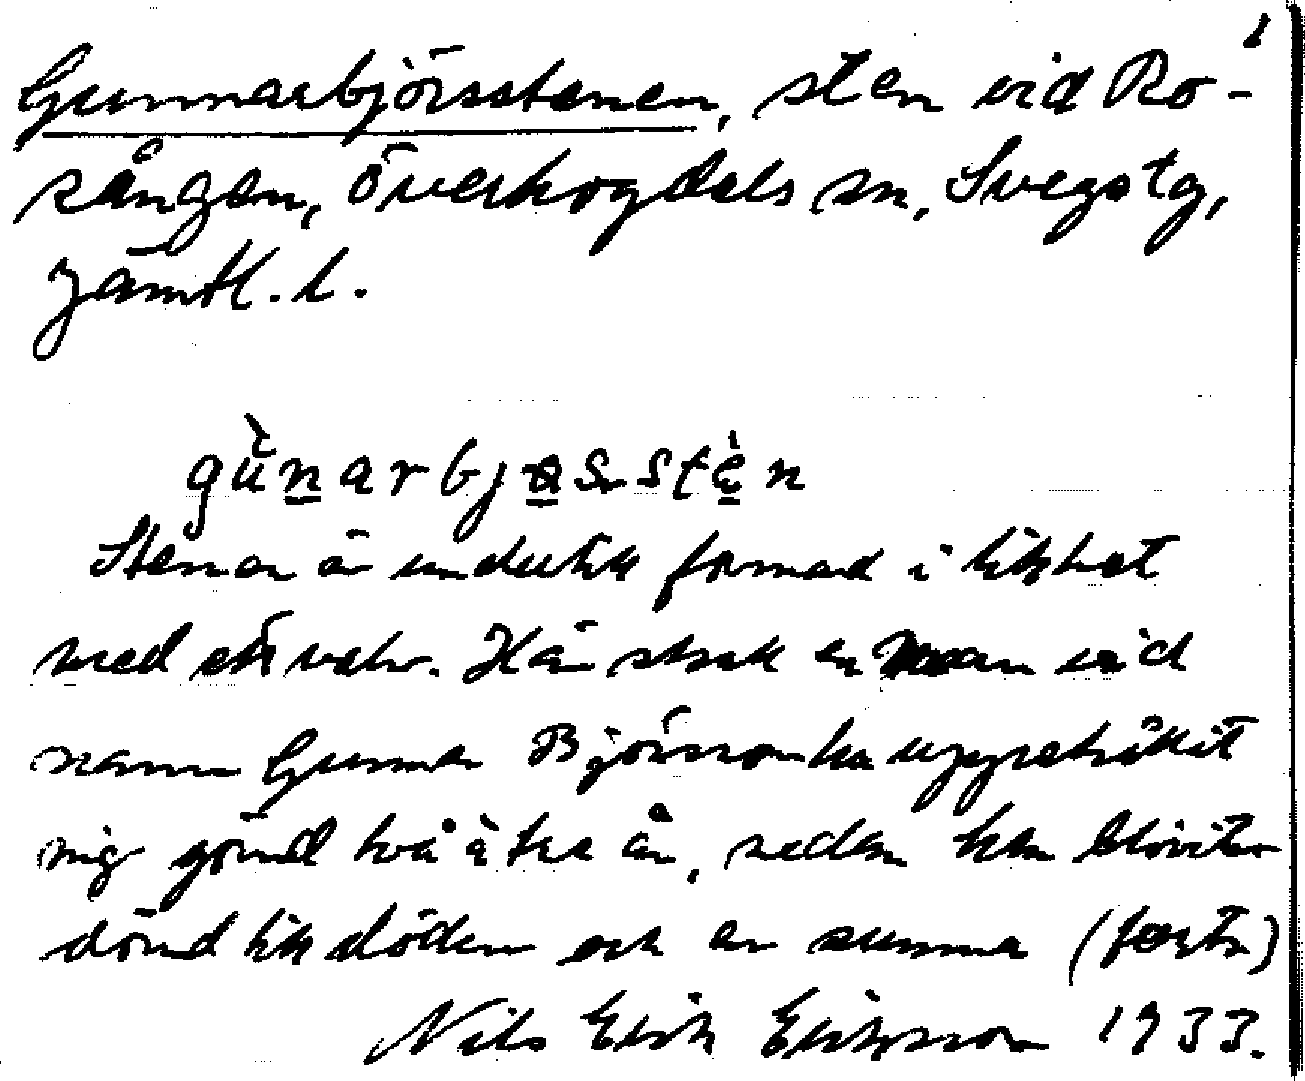 1
Gunnarbjörsstenen, sten vid Ro-
sången, Överhogdals sn, Svegs tg,
Jämtl. l.
gùnarbjɵsstèn
Stenen är underlik formad i likhet
med ett valv. Här skall en man vid
namn Gunnar Björnson ha uppehållit
sig gömd två à tre år, sedan han blivit
dömd till döden och en summa (forts)
Nils Erik Eriksson 1933.